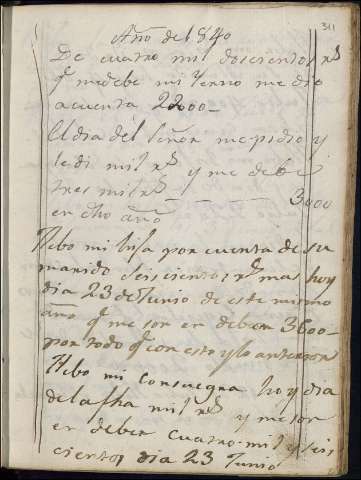 311
Año del 1840
De cuatro mil doscientos rs
q me debe mi Yerno me dio
a cuenta 2200
El dia del Señor me pidio y
le di mil rs y me debe
tres mil rs 3000
en dho año
Llebo mi hija por cuenta de su
marido seiscientos rs mas hoy
dia 23 de Junio de este mismo
año q me son en deber 3600
por todo q con esto y lo anterior
Llebo mi consuegra hoy dia
de la fha mil rs y me son
en deber cuatro mil y seis
cientos dia 23 Junio